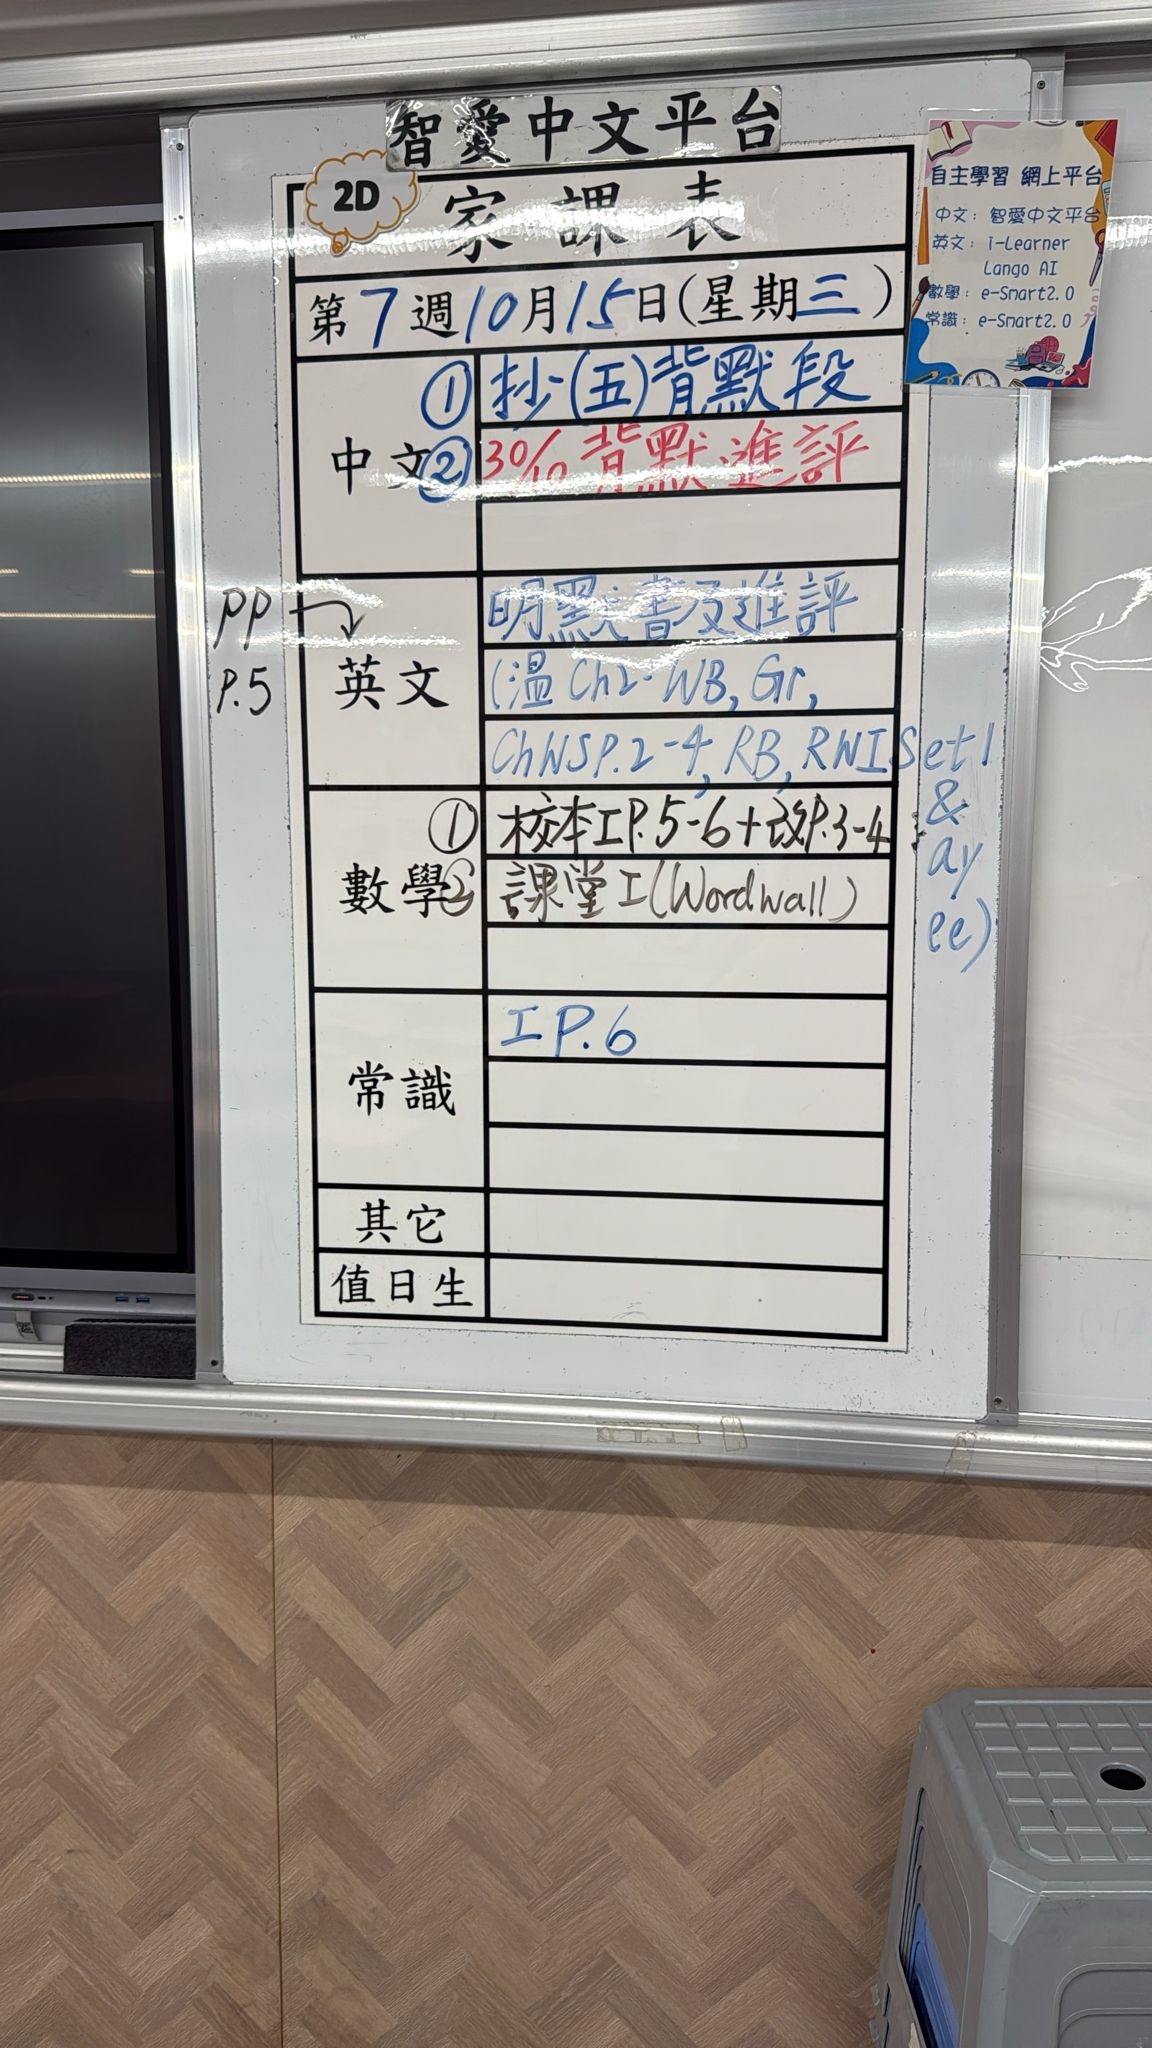 智愛中文平台
2D
家課表
第7週10月15日(星期三)
中文
① 抄(五)背默段
② 30/10 背默進評
pp
P.5
英文
明默書及進評
(溫Ch2. WB, Gr,
ChWSP.2-4, RB, RWI Set 1
& ay
ee)
數學
① 校本工P.5-6+改P.3-4
② 課堂工(Wordwall)
常識
工P.6
其它
值日生
自主學習 網上平台
中文: 智愛中文平台
英文: i-Learner
Lango AI
數學: e-Smart2.0
常識: e-Smart2.0